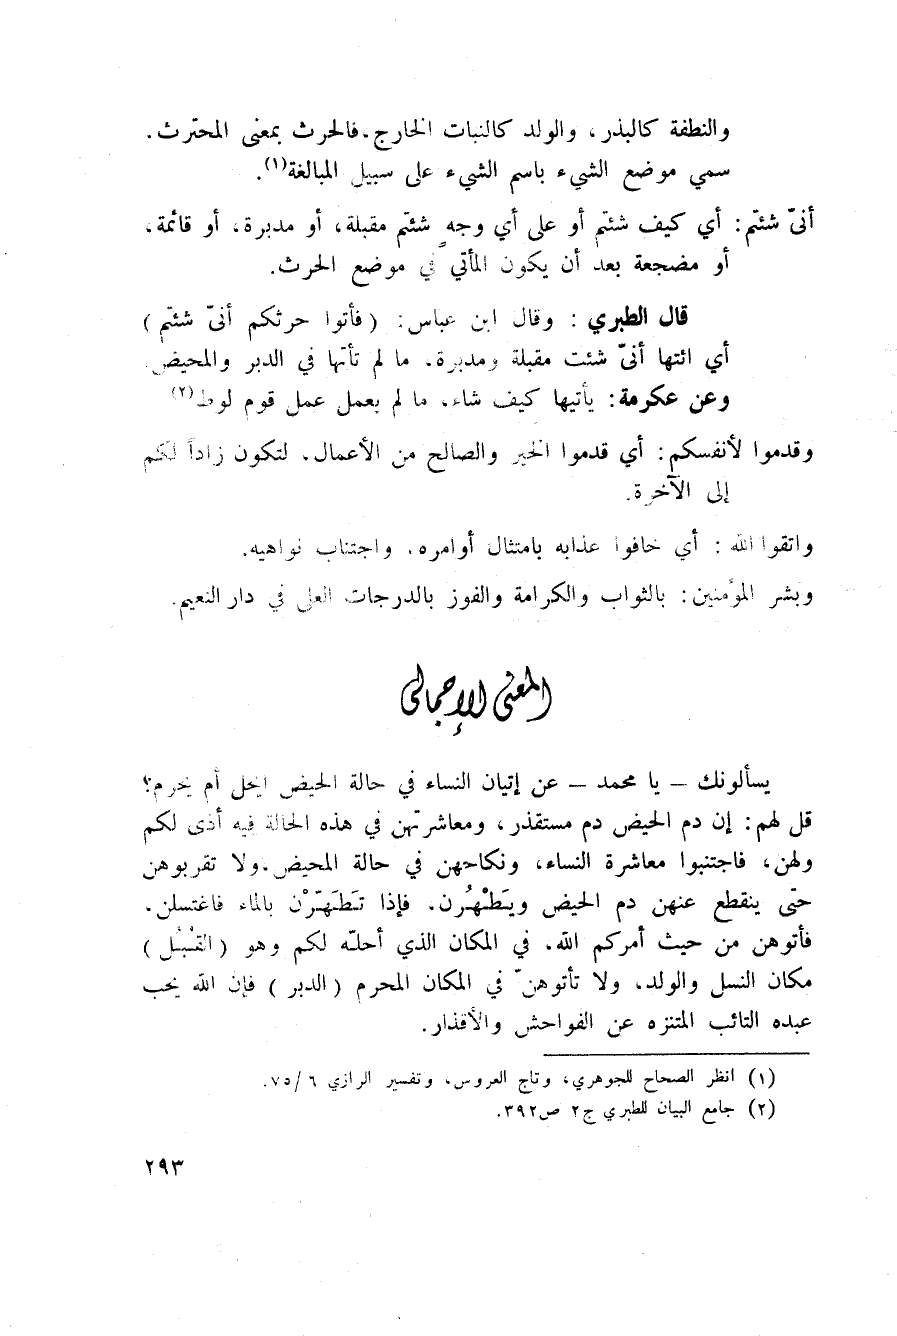 والنطفة كالبذر، والولد كالنبات الخارج. فالحرث بمعنى المحترث.
سمي موضع الشيء باسم الشيء على سبيل المبالغة(١).
أنىّ شئتم: أي كيف شئتم أو على أي وجه شئتم مقبلة، أو مدبرة، أو قائمة،
أو مضجعة بعد أن يكون المأتي في موضع الحرث.
قال الطبري : وقال ابن عباس: (فأتوا حرثكم أنىّ شئتم)
أي ائتها أنىّ شئت مقبلة ومدبرة. ما لم تأتها في الدبر والمحيض.
وعن عكرمة: يأتيها كيف شاء. ما لم يعمل عمل قوم لوط(٢)
وقدموا لأنفسكم: أي قدموا الخير والصالح من الأعمال. لتكون زاداً لكم
إلى الآخرة.
واتقوا الله : أي خافوا عذابه بامتثال أوامره، واجتناب نواهيه.
وبشر المؤمنين: بالثواب والكرامة والفوز بالدرجات العلى في دار النعيم.
المعنى الإجمالي
يسألونك – يا محمد – عن إتيان النساء في حالة الحيض أيحل أم يحرم؟
قل لهم: إن دم الحيض دم مستقذر، ومعاشرتهن في هذه الحالة فيه أذى لكم
ولهن، فاجتنبوا معاشرة النساء، ونكاحهن في حالة المحيض. ولا تقربوهن
حتى ينقطع عنهن دم الحيض ويَطْهُرن. فإذا تَطَهّرْن بالماء فاغتسلن.
فأتوهن من حيث أمركم الله. في المكان الذي أحله لكم وهو (القُبُل)
مكان النسل والولد، ولا تأتوهنّ في المكان المحرم (الدبر) فإن الله يحب
عبده التائب المتنزه عن الفواحش والأقذار.
(١) انظر الصحاح للجوهري، وتاج العروس، وتفسير الرازي ٦/ ٧٥.
(٢) جامع البيان للطبري ج٢ ص٣٩٢.
٢٩٣